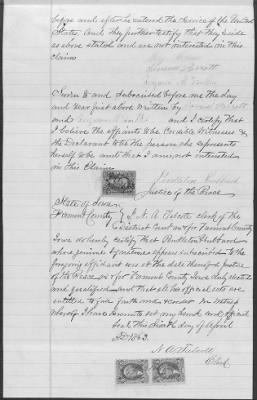 before and after he entered the Service of the United
States. And they further testify that they reside
as above stated and are not interested in this
claim
Sworn to and subscribed before me this day
and year just above written by
and and I certify that
I believe the affiants to be credible Witnesses &
the Declarant to be the person she represents
herself to be and that I am not interested
in this Claim
Pendleton Hubbard
Justice of the Peace
State of Iowa
Fremont County } I N. A. clerk of the
District Court in & for Fremont County
Iowa do hereby certify that Pendleton Hubbard
whose genuine signature appears subscribed to the
foregoing affidavit was at the date thereof Justice
of the Peace in & for Fremont County Iowa duly elected
and qualified and that all his official acts are
entitled to full faith and credit In testimony
whereof I have hereunto set my hand and official
seal this day of April
AD 1863.
N. A.
Clerk